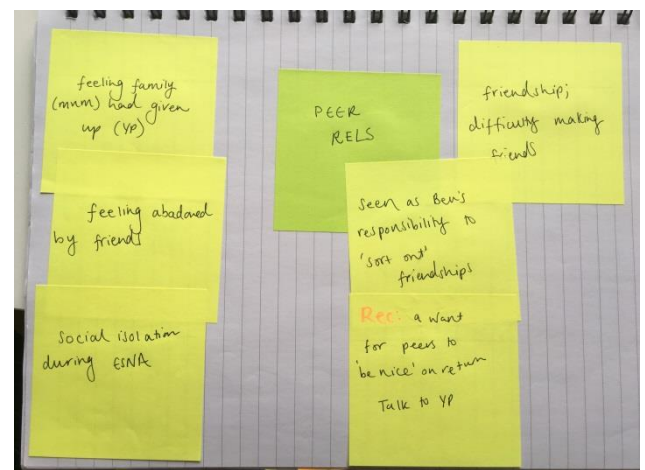 feeling family
(mum) had given
up (YP)
feeling abadoned
by friends
Social isolation
during ESNA
PEER
RELS
friendship;
difficulty making
friends
Seen as Ben's
responsibility to
'sort out'
friendships
Rec: a want
for peers to
'be nice' on return
Talk to YP